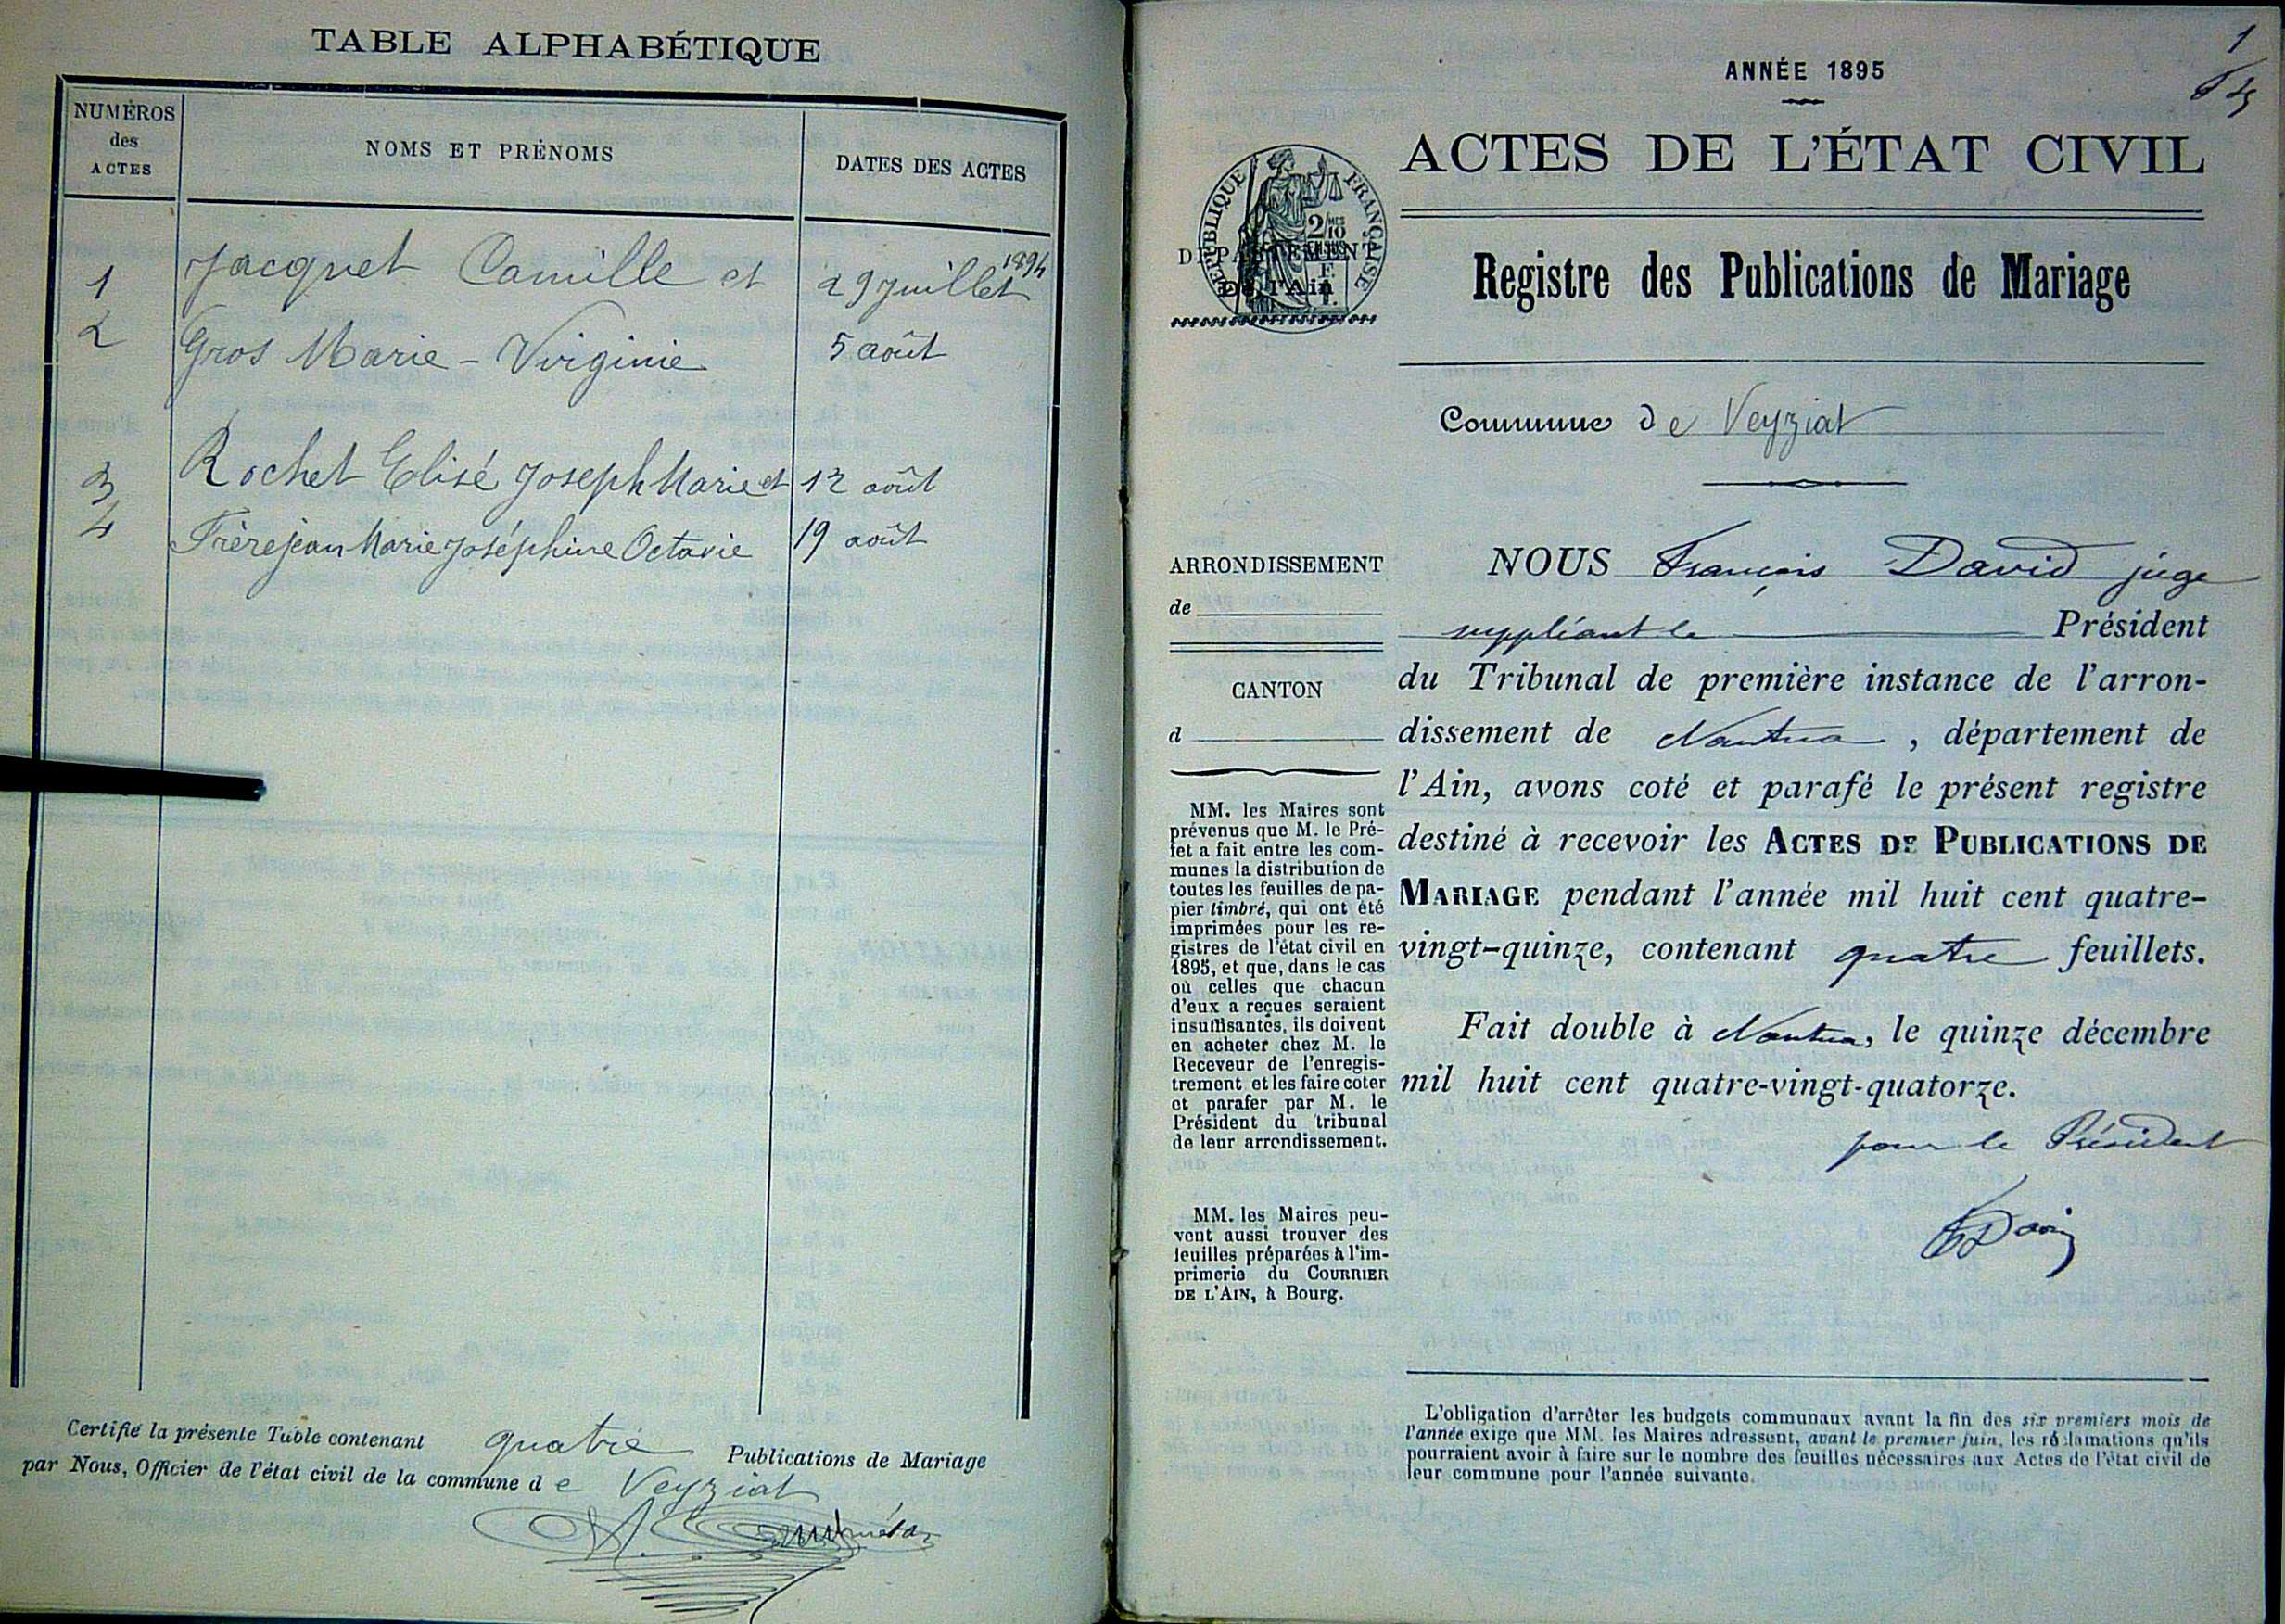 TABLE ALPHABÉTIQUE
NUMÉROS
des
ACTES
NOMS ET PRÉNOMS
DATES DES ACTES
1 Jacquet Camille et 29 juillet 1894
2 Gros Marie - Virginie 5 août
3 Rochet Elisé Joseph Marie et 12 août
4 Frèrejean Marie Joséphine Octavie 19 août
Certifié la présente Table contenant quatre Publications de Mariage
par Nous, Officier de l'état civil de la commune de Veyziat
1
ANNÉE 1895
ACTES DE L'ÉTAT CIVIL
RÉPUBLIQUE FRANÇAISE
2/10
DÉPARTEMENT
DE l'Ain
Registre des Publications de Mariage
Commune de Veyziat
ARRONDISSEMENT
de
CANTON
d
MM. les Maires sont
prévenus que M. le Pré-
fet a fait entre les com-
munes la distribution de
toutes les feuilles de pa-
pier timbré, qui ont été
imprimées pour les re-
gistres de l'état civil en
1895, et que, dans le cas
où celles que chacun
d'eux a reçues seraient
insuffisantes, ils doivent
en acheter chez M. le
Receveur de l'enregis-
trement et les faire coter
et parafer par M. le
Président du tribunal
de leur arrondissement.
MM. les Maires peu-
vent aussi trouver des
feuilles préparées à l'im-
primerie du COURRIER
DE L'AIN, à Bourg.
NOUS François David juge
suppléant le Président
du Tribunal de première instance de l'arron-
dissement de Nantua, département de
l'Ain, avons coté et parafé le présent registre
destiné à recevoir les ACTES DE PUBLICATIONS DE
MARIAGE pendant l'année mil huit cent quatre-
vingt-quinze, contenant quatre feuillets.
Fait double à Nantua, le quinze décembre
mil huit cent quatre-vingt-quatorze.
pour le Président
L'obligation d'arrêter les budgets communaux avant la fin des six premiers mois de
l'année exige que MM. les Maires adressent, avant le premier juin, les réclamations qu'ils
pourraient avoir à faire sur le nombre des feuilles nécessaires aux Actes de l'état civil de
leur commune pour l'année suivante.